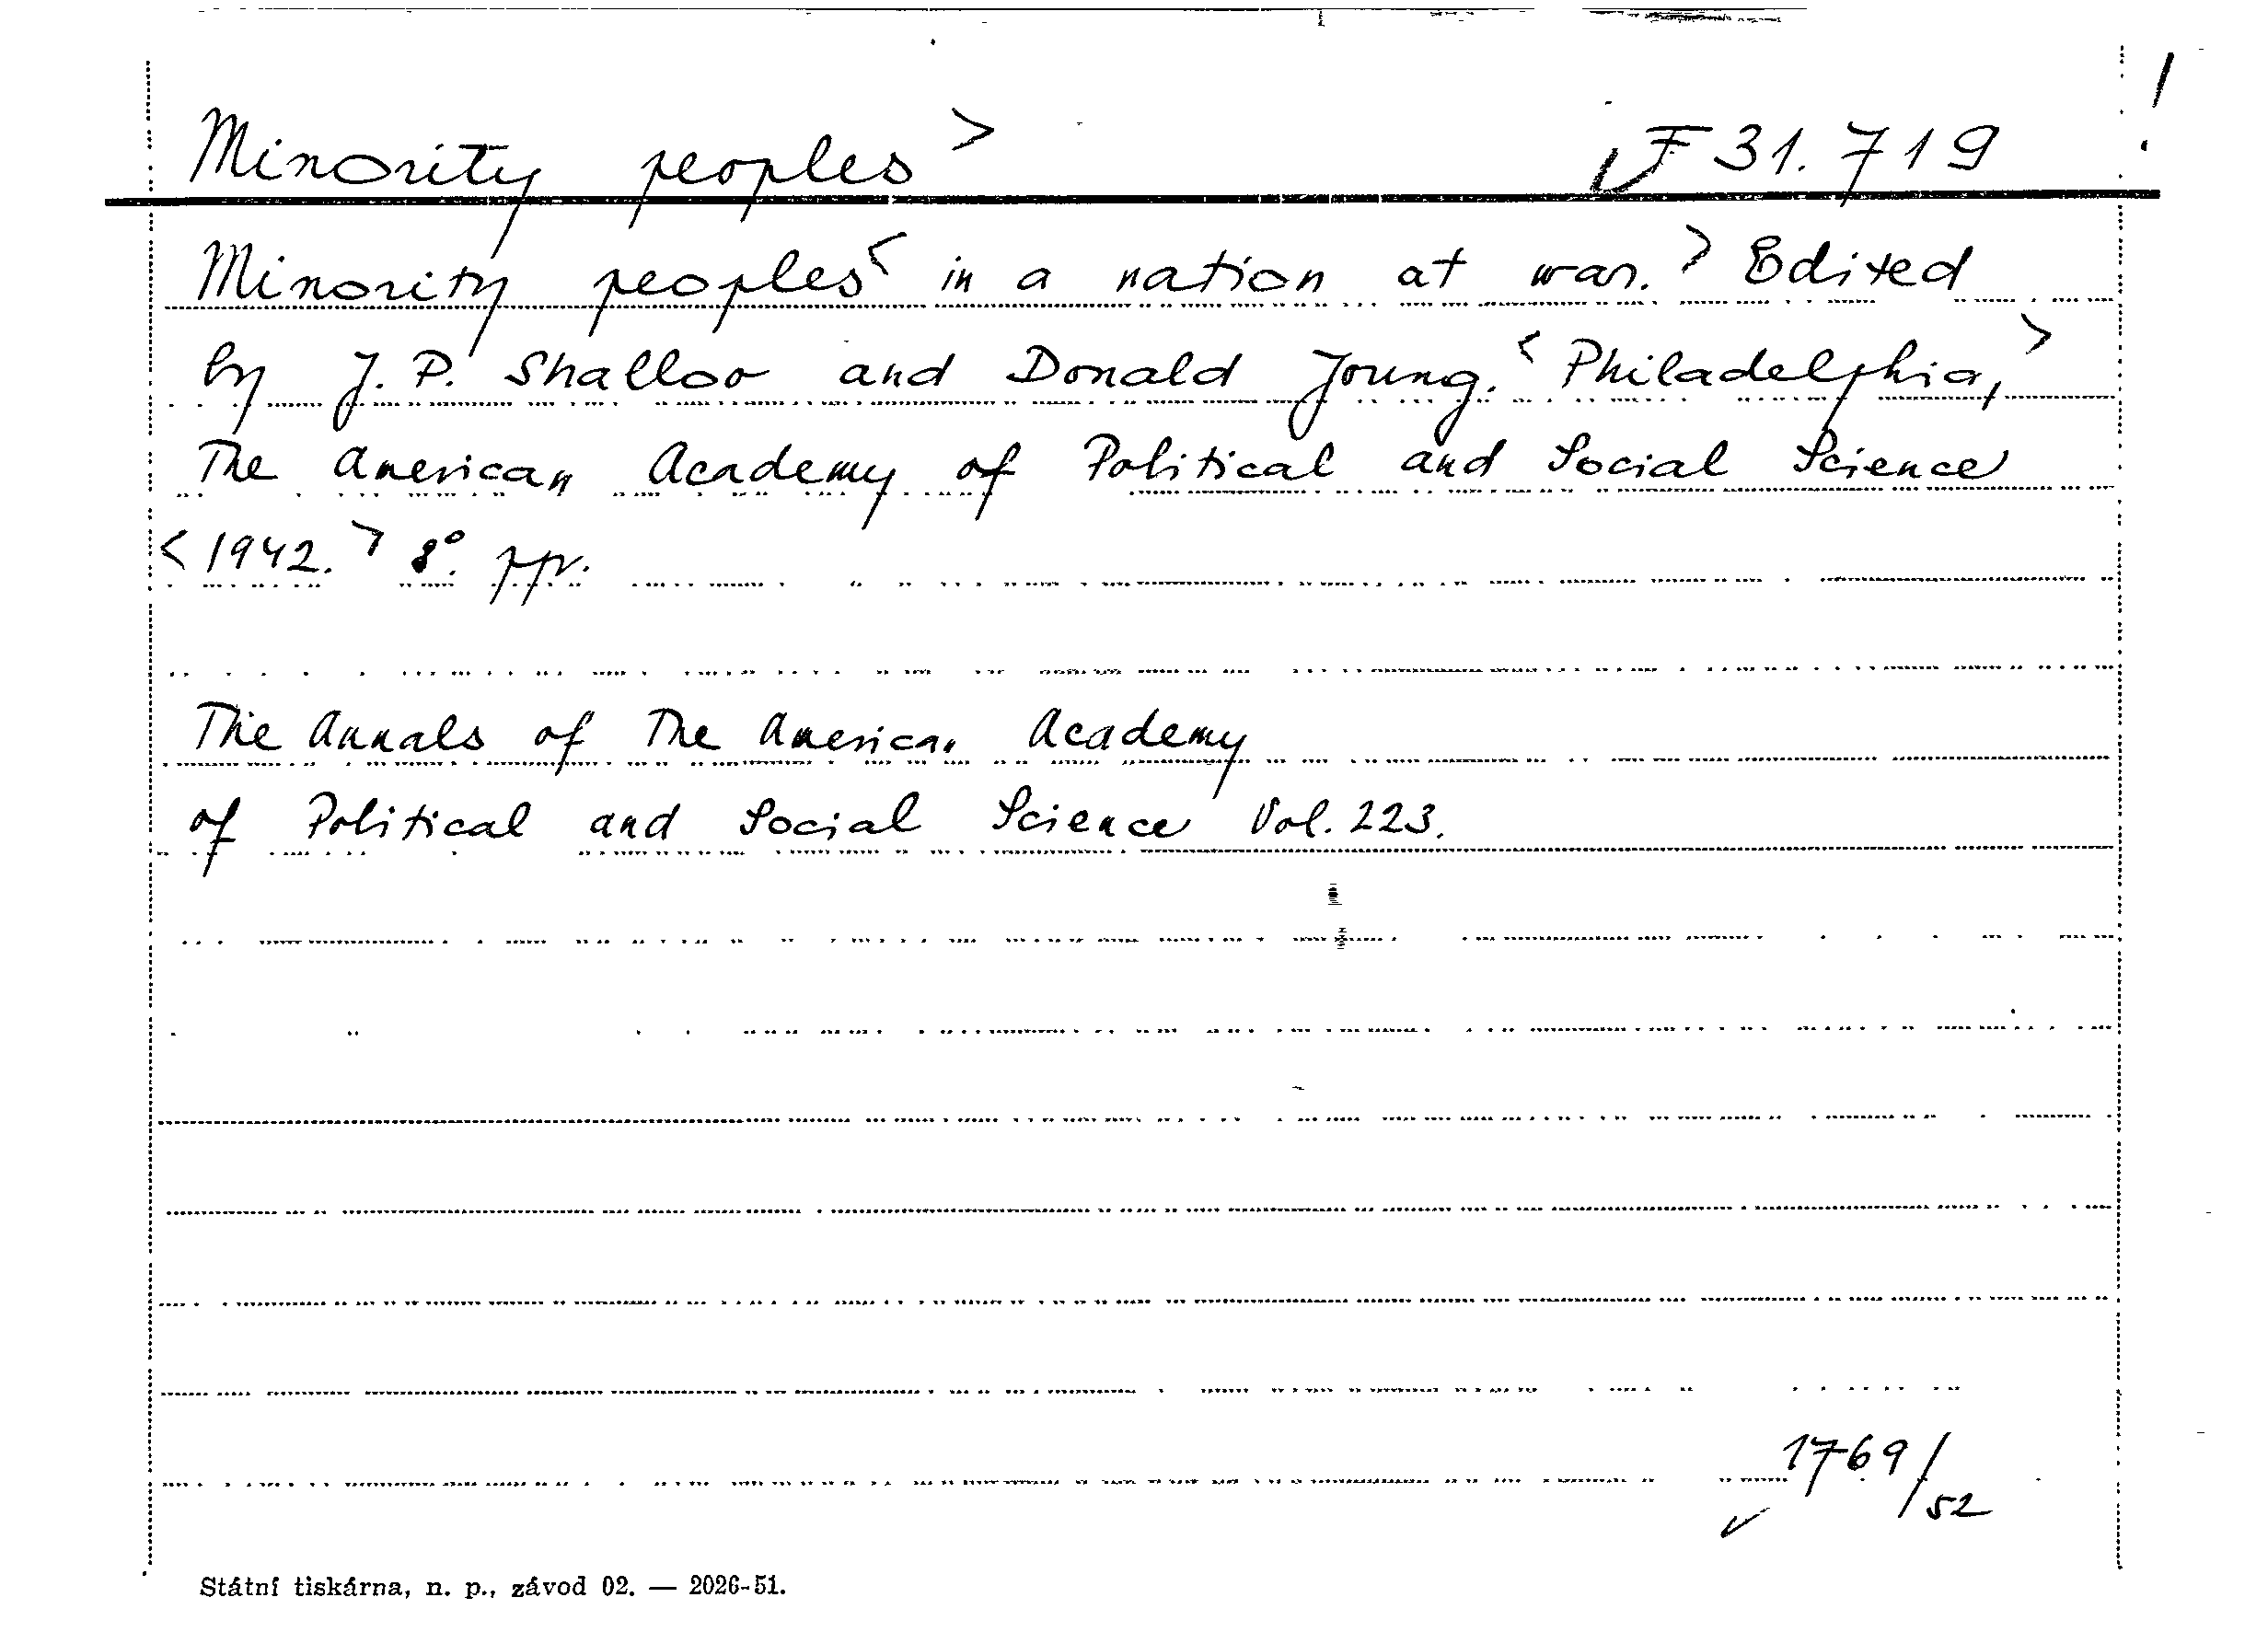 Minority peoples > F 31.719 !
Minority peoples < in a nation at war. > Edited
by J. P. Shalloo and Donald Young. < Philadelphia, >
The American Academy of Political and Social Science
< 1942. > 8°. ppv.
The Annals of The American Academy
of Political and Social Science Vol. 223.
1769/52
Státní tiskárna, n. p., závod 02. — 2026-51.